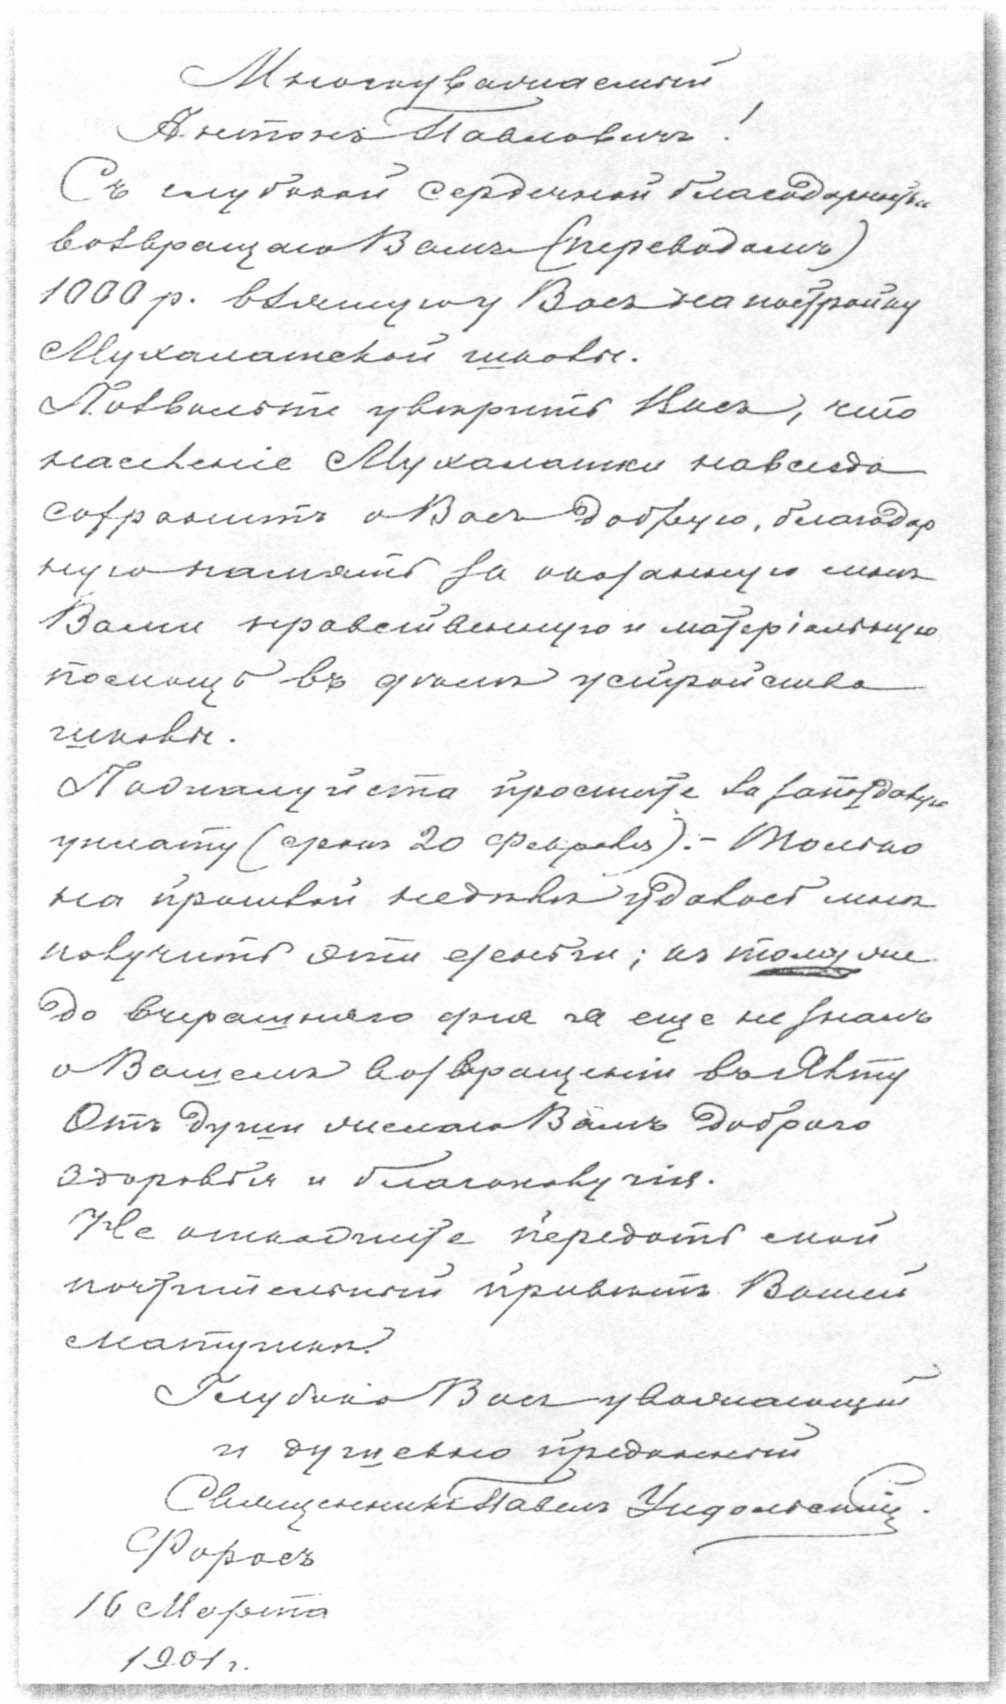 Многоуважаемый
Антонъ Павловичъ!
Съ глубокой сердечной благодарностью
возвращаю Вамъ (переводомъ)
1000 р. взятую у Васъ на постройку
Мухалатской школы.
Позвольте увѣрить Васъ, что
населеніе Мухалатки навсегда
сохранитъ о Васъ добрую, благодар
ную память за оказанную мнѣ
Вами нравственную и матеріальную
помощь въ дѣлѣ устройства
школы.
Пожалуйста простите за запоздалую
уплату (срокъ 20 Февраля).– Только
на прошлой недѣлѣ удалось мнѣ
получить эти деньги; къ тому же
до вчерашняго дня я еще не зналъ
о Вашемъ возвращеніи въ Ялту
Отъ души желаю Вамъ добраго
здоровья и благополучія.
Не откажите передать мой
почтительный привѣтъ Вашей
матушкѣ.
Глубоко Васъ уважающій
и душевно преданный
Священникъ Павелъ Ундольскій.
Форосъ
16 Марта
1901 г.